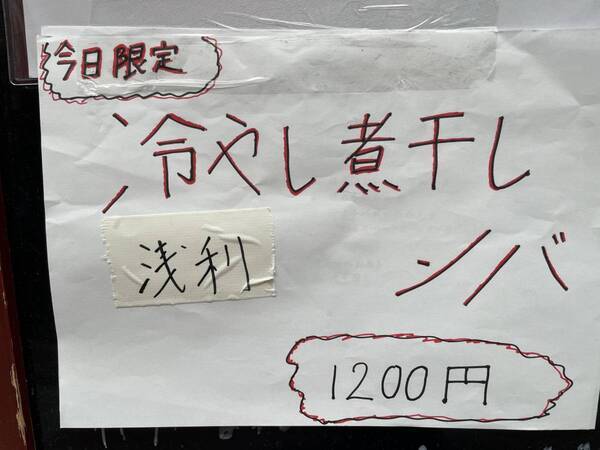 今日限定
冷やし煮干し
浅利
シバ
1200円